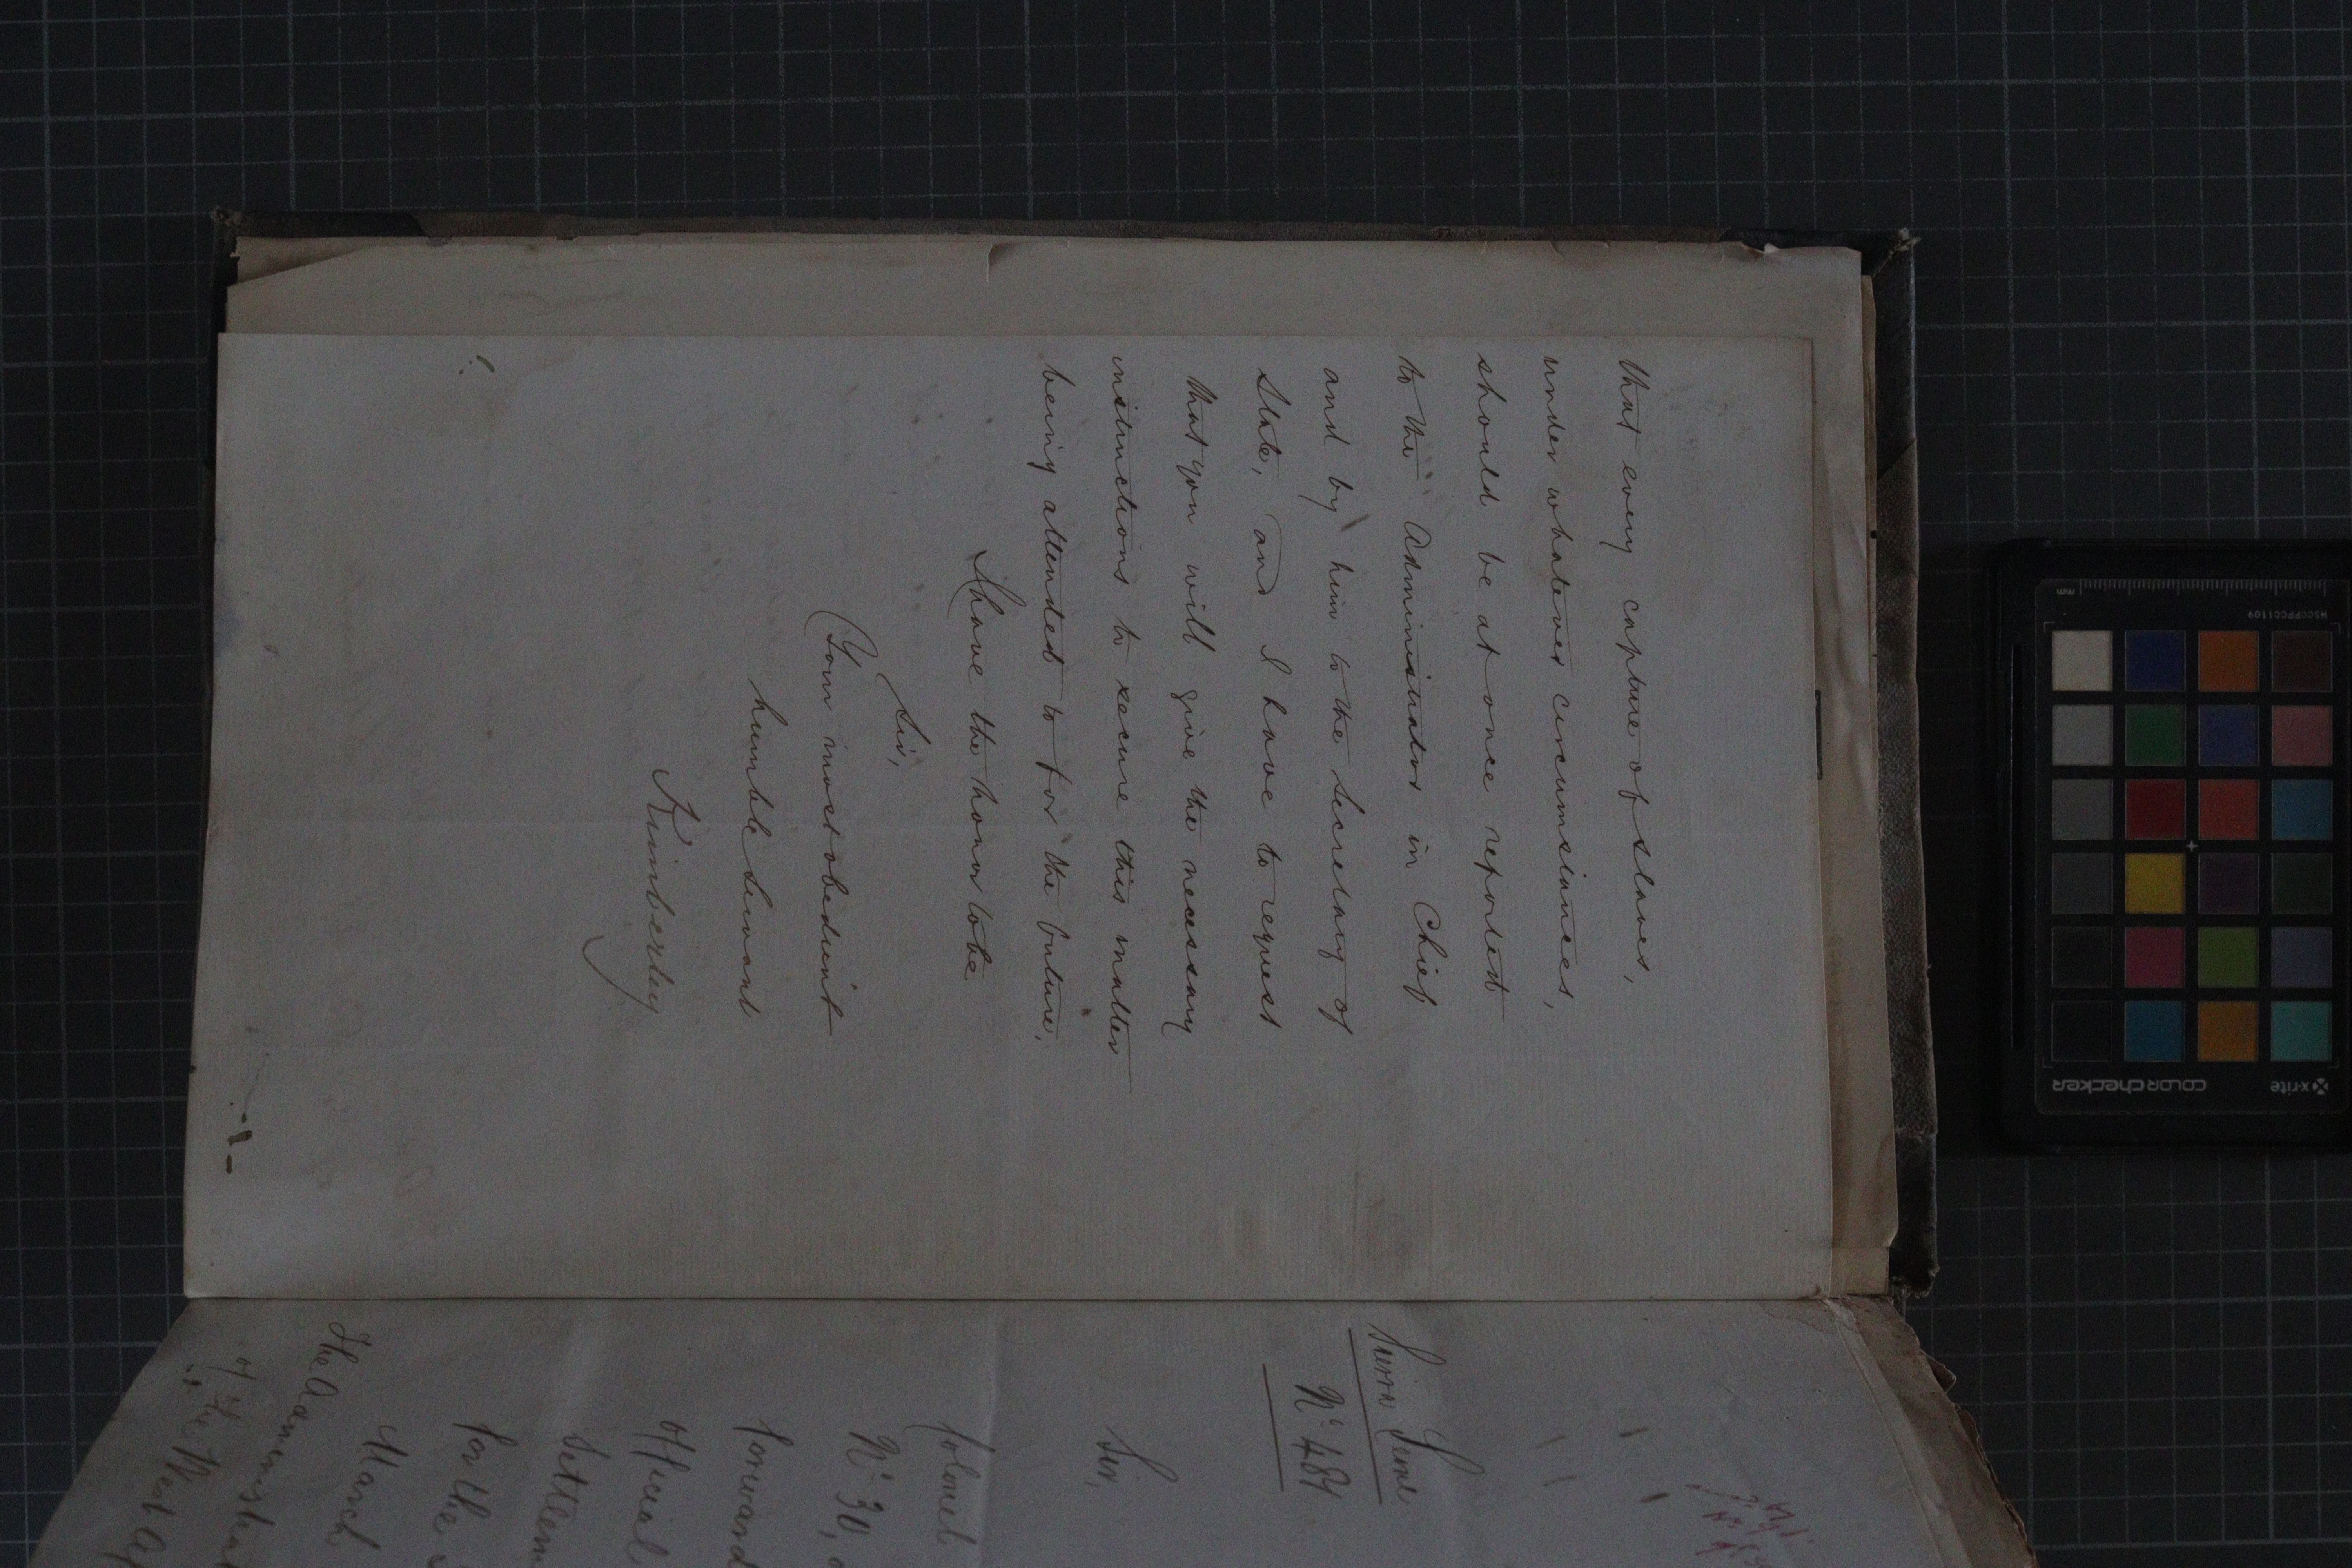 that every capture of slaves,
under whatever circumstances,
should be at once reported
to the Administrator in Chief
and by him to the Secretary of
State, and I have to request
that you will give the necessary
instructions to secure this matter
being attended to for the future.
I have the honor to be
Sir,
Your most obedient
humble Servant
Kimberley
Sierra Leone
No. 484
Sir,
Colonel
No. 30,
forward
Official
Settlem
for the
March
The Administ
of the West Af
mm
MSCCPPCC1109
x-rite
colorchecker